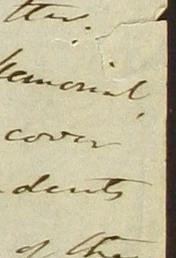 ther.
Memorial,
cover
dents
of the